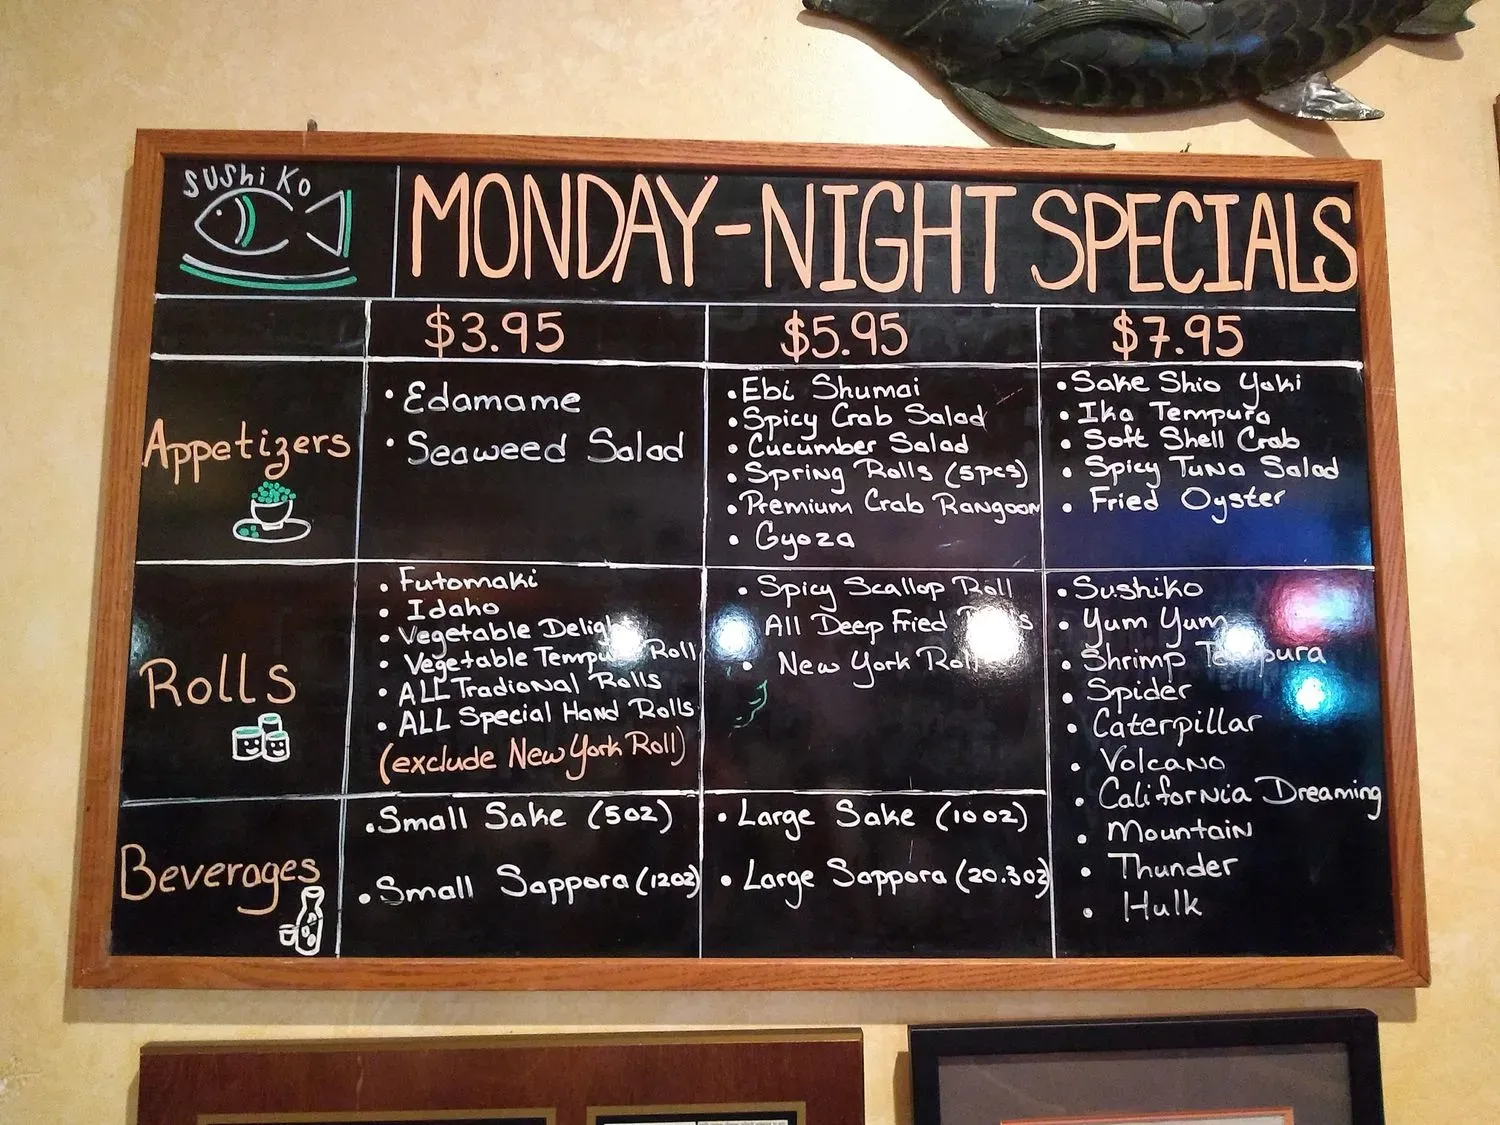 SUShi KO
MONDAY-NIGHT SPECIALS
$3.95
$5.95
$7.95
Appetizers
• Edamame
• Seaweed Salad
• Ebi Shumai
• Spicy Crab Salad
• Cucumber Salad
• Spring Rolls (5pcs)
• Premium Crab Rangoon
• Gyoza
• Sake Shio Yaki
• Ika Tempura
• Soft Shell Crab
• Spicy Tuna Salad
• Fried Oyster
Rolls
• Futomaki
• Idaho
• Vegetable Delight
• Vegetable Tempura Roll
• ALL Tradional Rolls
• ALL Special Hand Rolls
(exclude New York Roll)
• Spicy Scallop Roll
All Deep Fried Rolls
• New York Roll
• Sushiko
• Yum Yum
• Shrimp Tempura
• Spider
• Caterpillar
• Volcano
• California Dreaming
• Mountain
• Thunder
• Hulk
Beverages
• Small Sake (5oz)
• Small Sappora (12oz)
• Large Sake (10oz)
• Large Sappora (20.3oz)